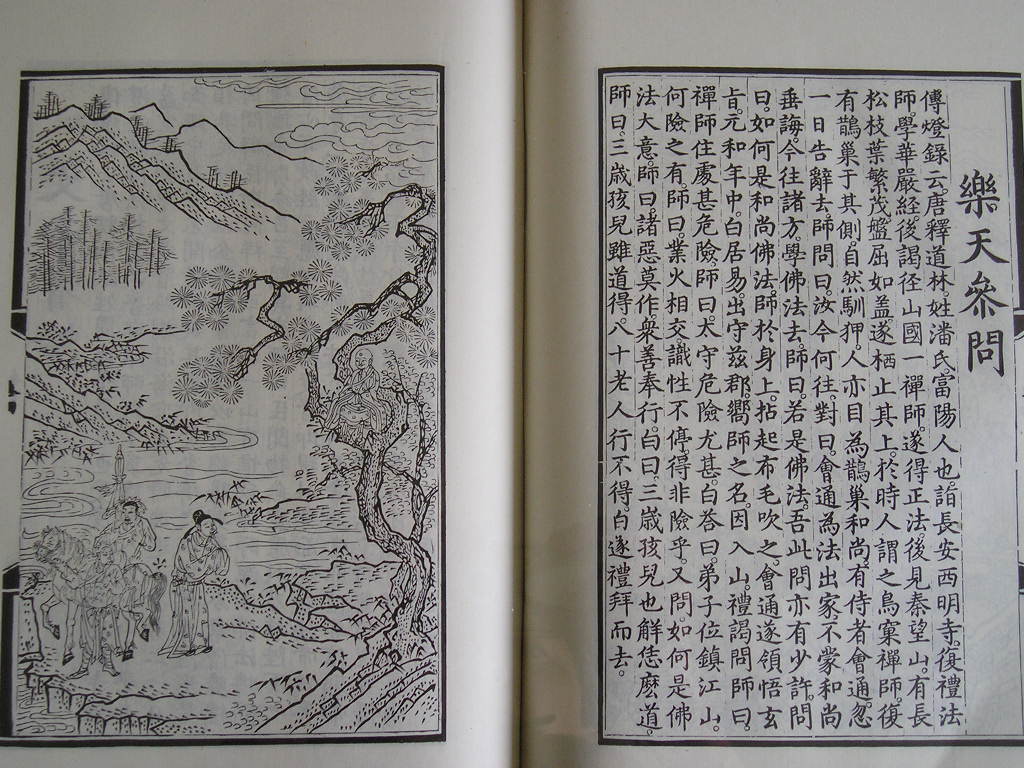 樂天叅問
傳燈錄云。唐釋道林姓潘氏。富陽人也。詣長安西明寺。復禮法
師。學華嚴経。後謁径山國一禪師。遂得正法。後見秦望山。有長
松枝葉繁茂。盤屈如盖。遂栖止其上。於時人謂之鳥窠禪師。復
有鵲巢于其側。自然馴狎。人亦目為鵲巢和尚。有侍者會通。忽
一日告辭去。師問曰。汝今何往。對曰。會通為法出家。不蒙和尚
垂誨。今往諸方。學佛法去。師曰。若是佛法。吾此問亦有少許。問
曰。如何是和尚佛法。師於身上。拈起布毛吹之。會通遂領悟玄
㫖。元和年中。白居易。出守茲郡。嚮師之名。因入山。禮謁問師曰。
禪師住處甚危險。師曰。太守危險尤甚。白答曰。弟子位鎮江山。
何險之有。師曰。業火相交。識性不停。得非險乎。又問。如何是佛
法大意。師曰。諸惡莫作。衆善奉行。白曰。三歲孩兒也解恁麽道。
師曰。三歲孩兒雖道得。八十老人行不得。白遂禮拜而去。